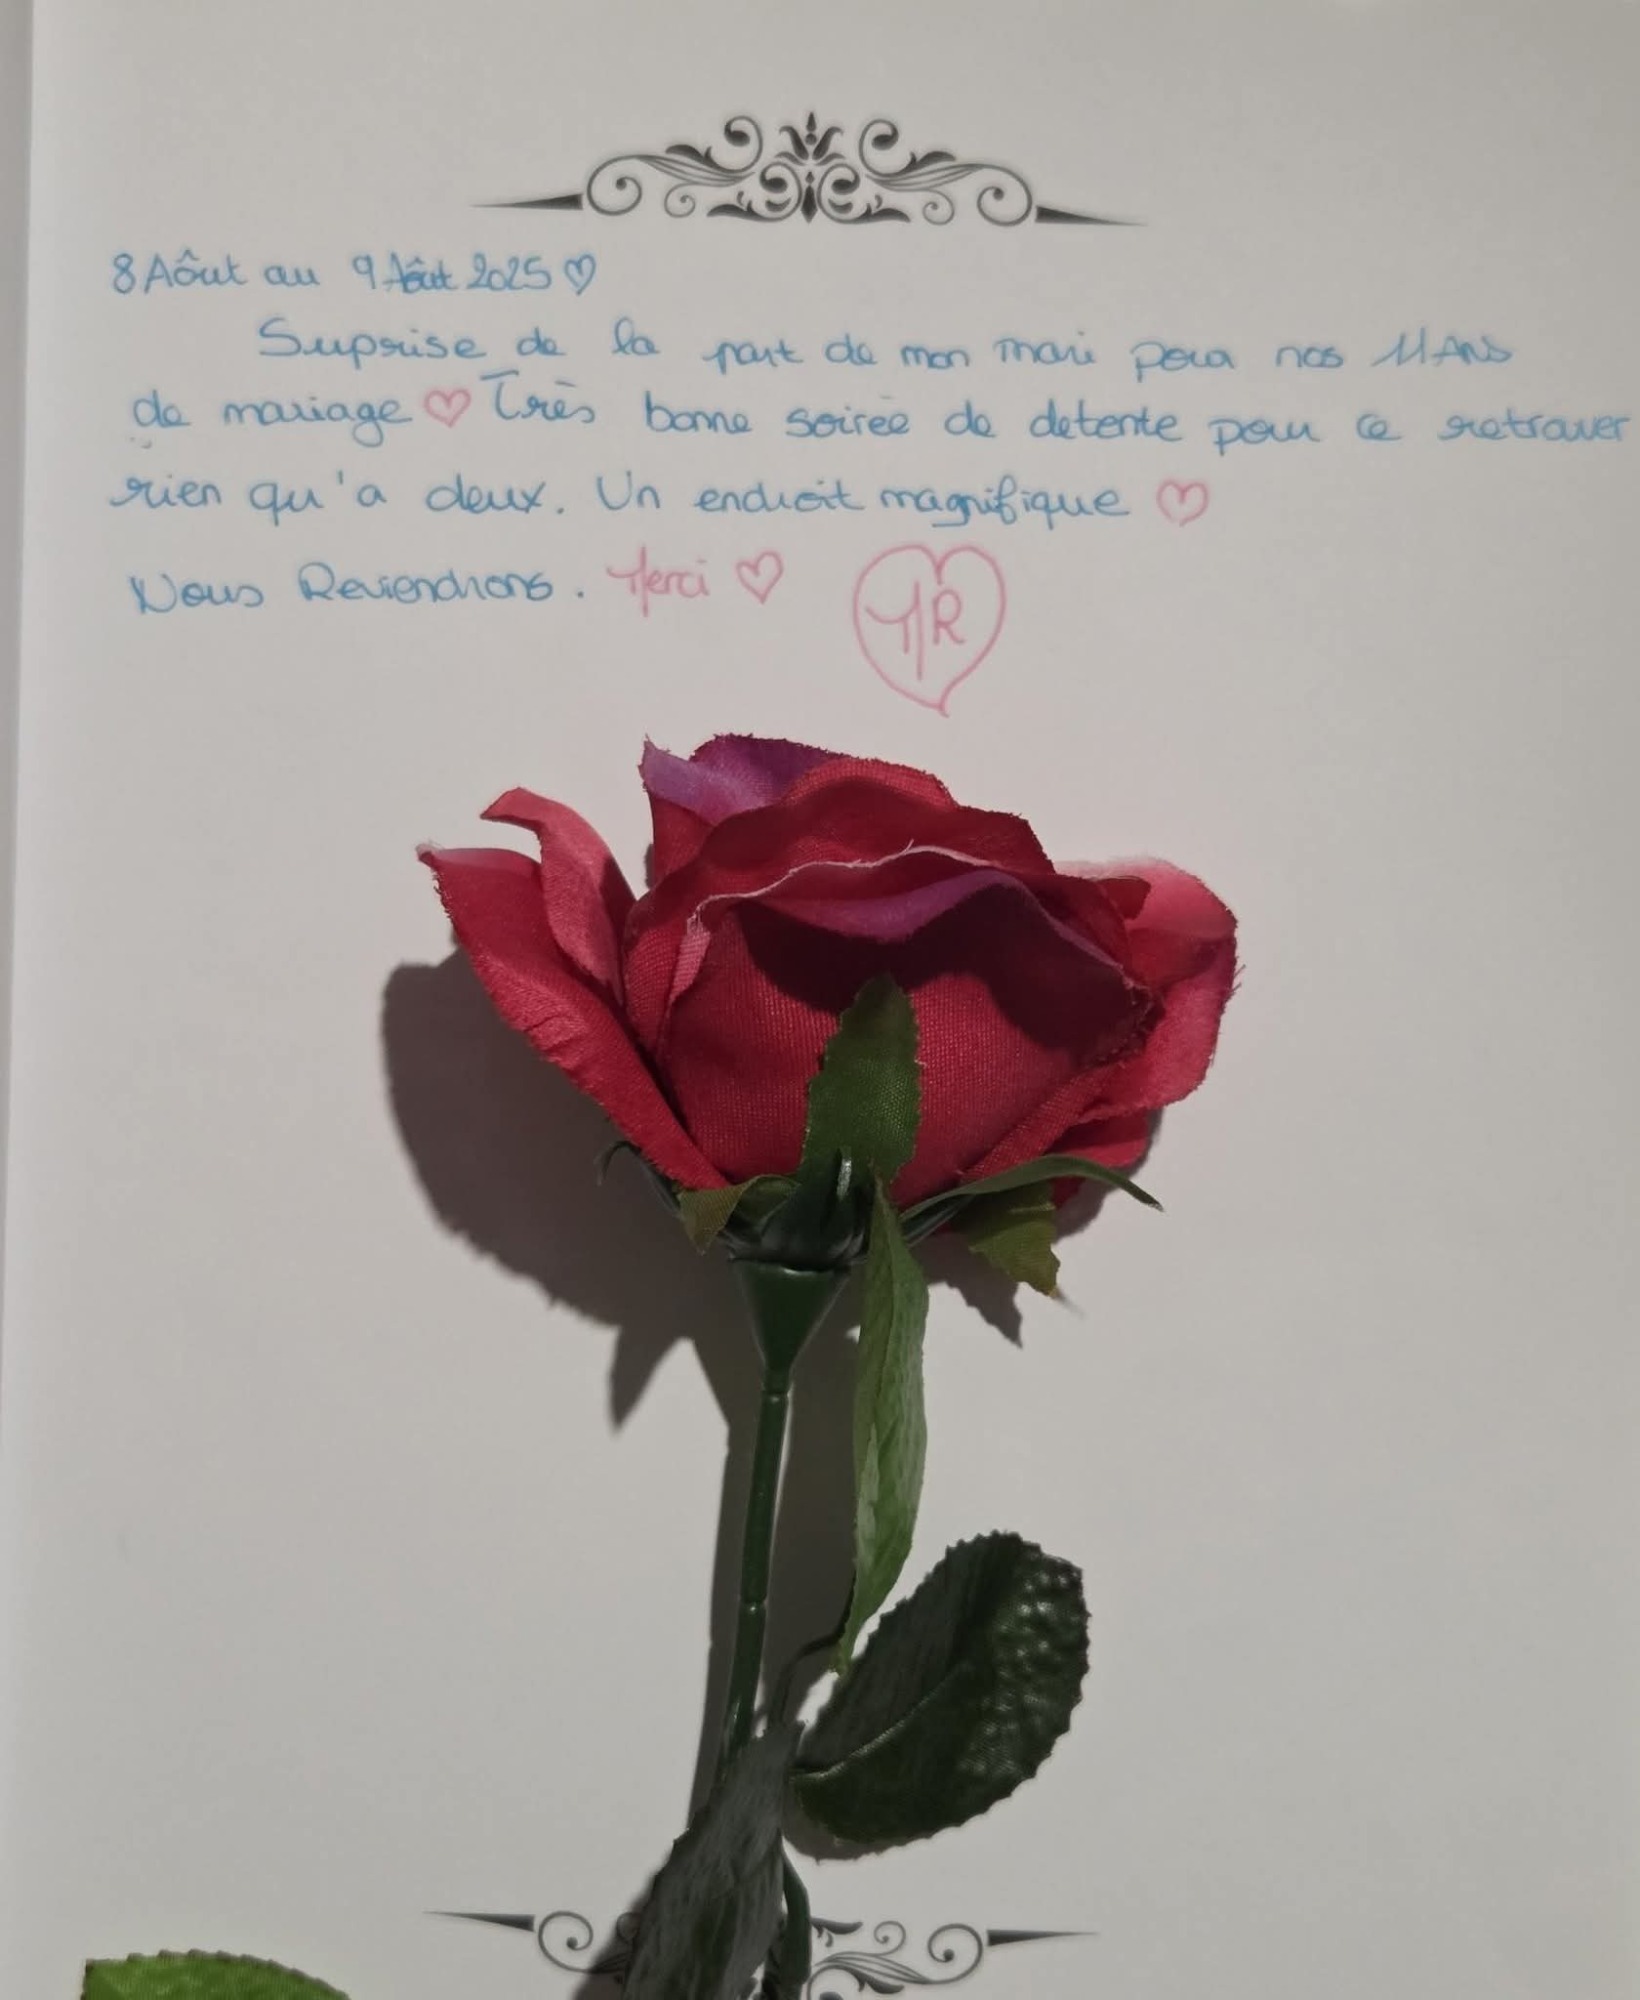 8 Aôut au 9 Aôut 2025 ♡
Suprise de la part de mon mari pour nos 11 ANS
de mariage ♡ Très bonne soirée de detente pour ce retrouver
rien qu'a deux. Un endroit magnifique ♡
Nous Reviendrons. Merci ♡ MR